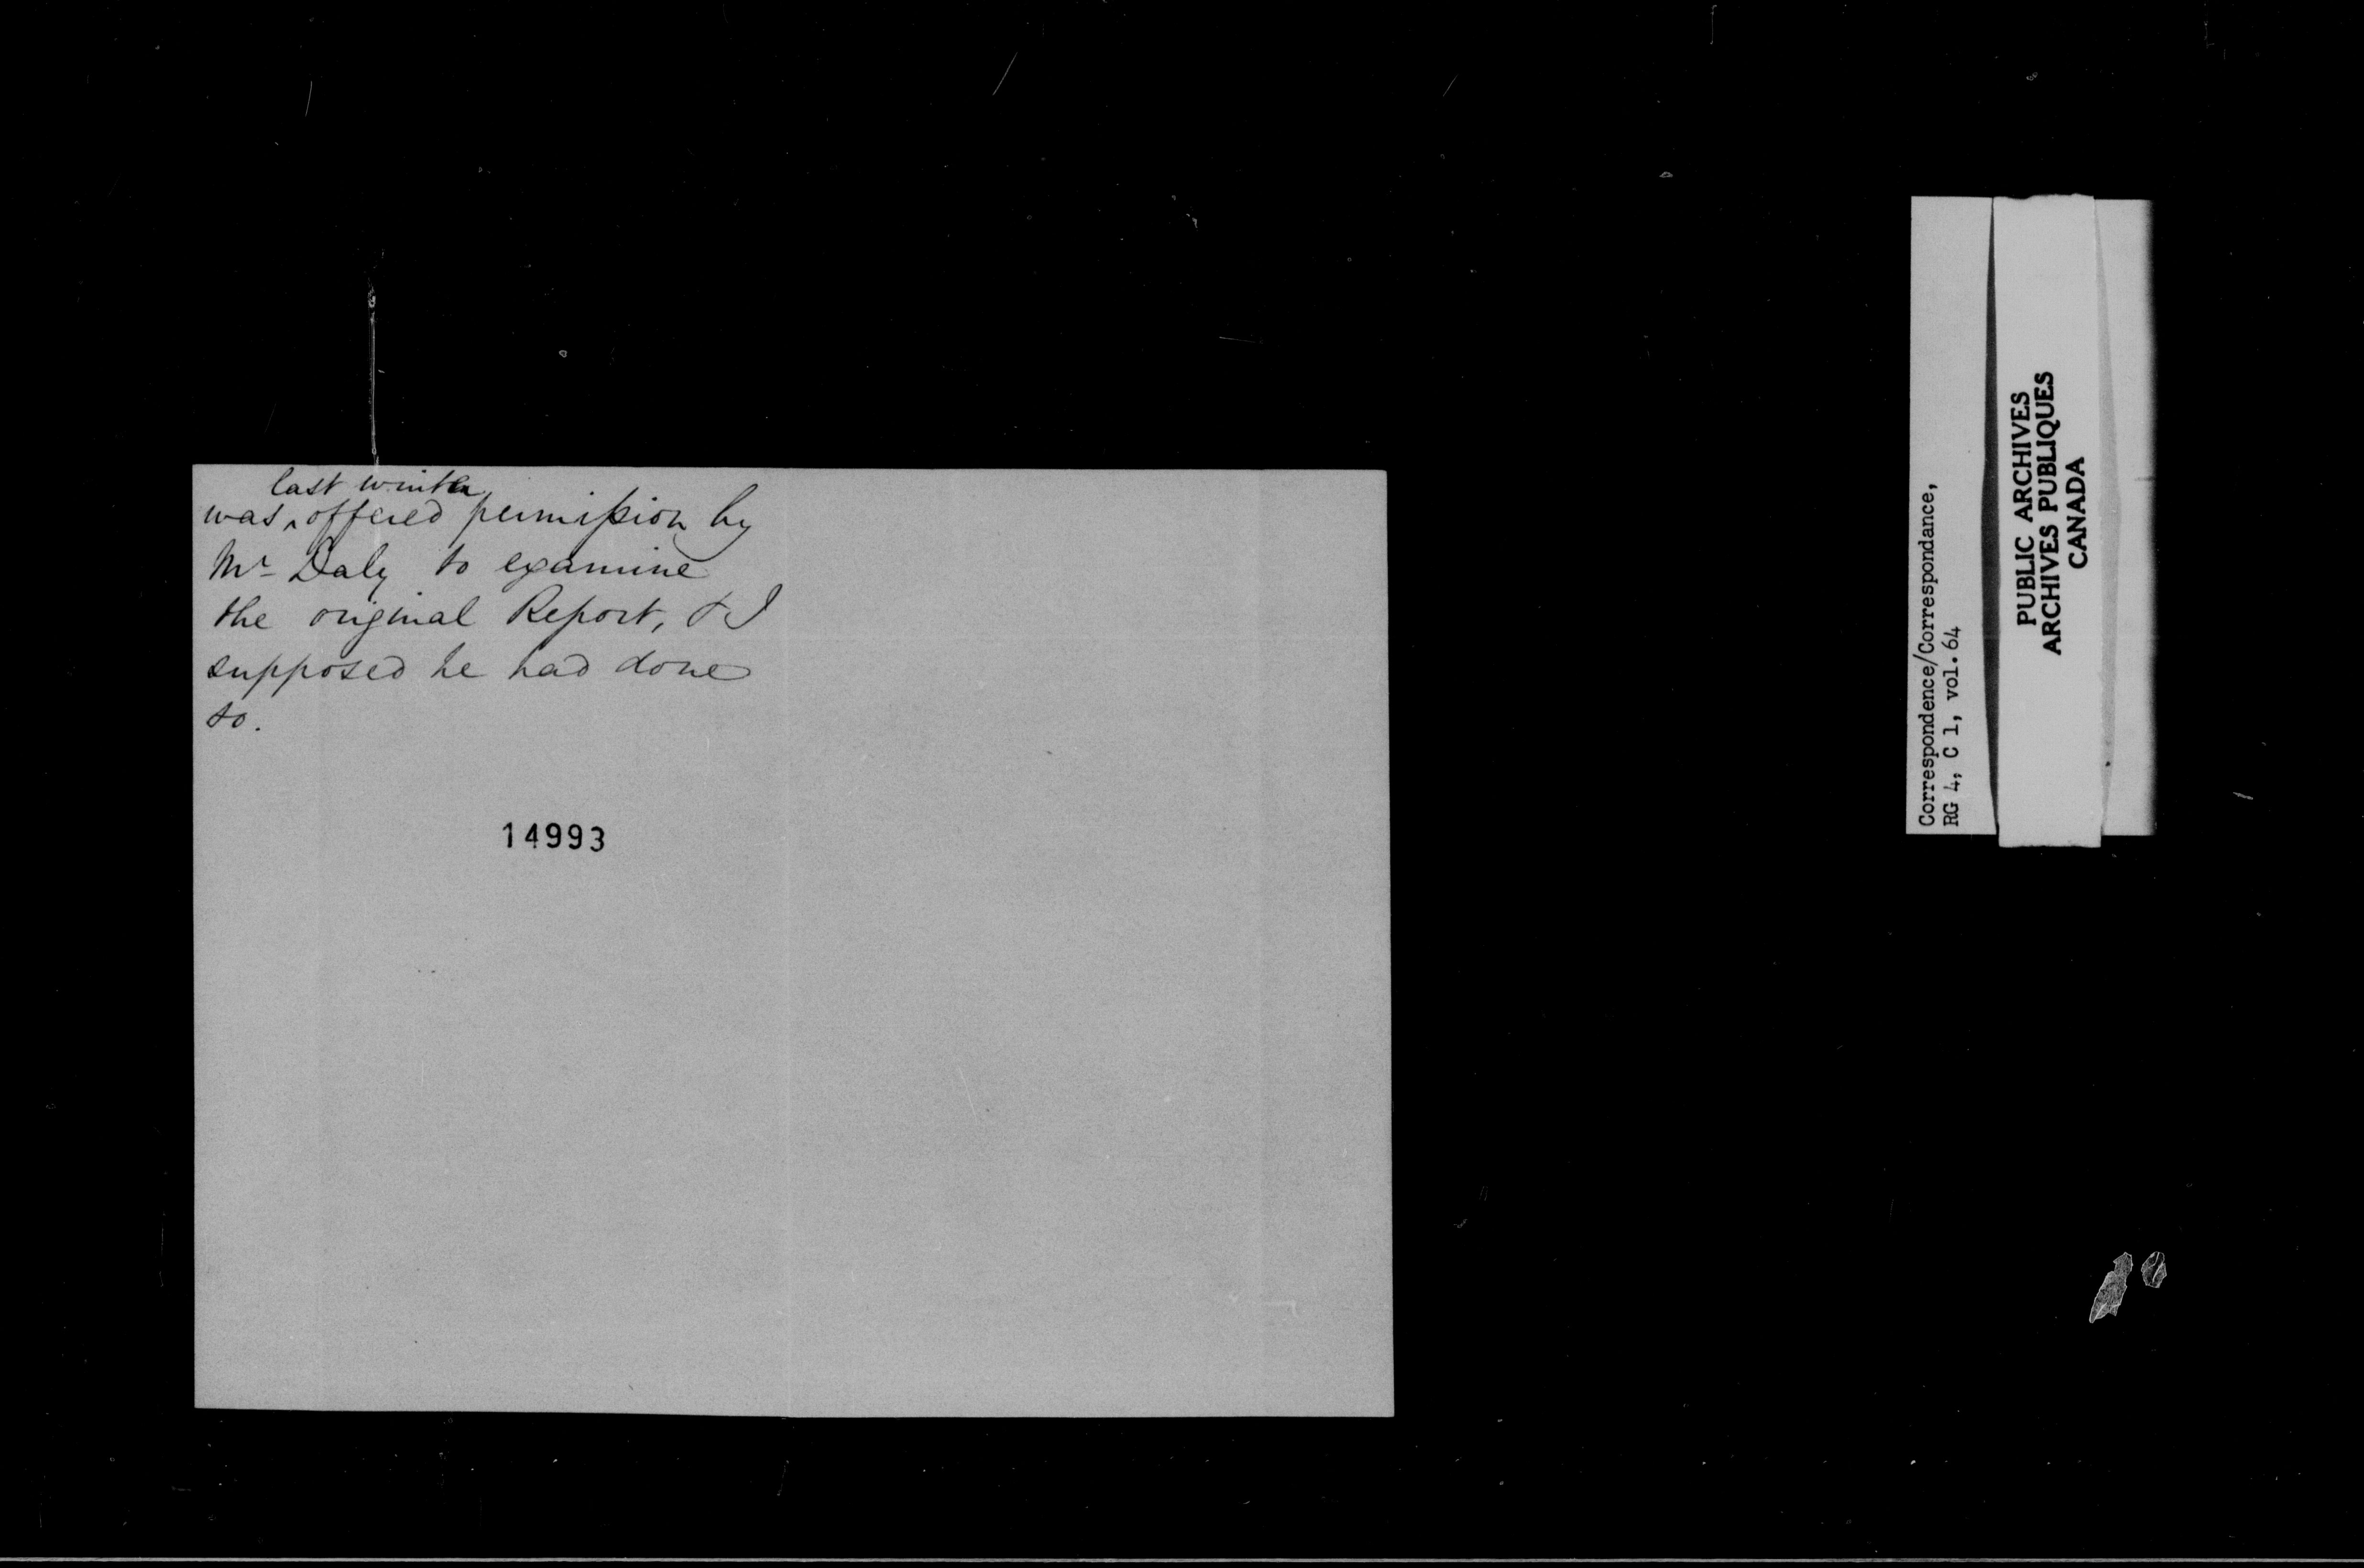 last winter
was ^ offered permission by
Mr Daly to examine
the original Report, & I
supposed he had done
so.
14993
Correspondence/Correspondance,
RG 4, C 1, vol.64
PUBLIC ARCHIVES
ARCHIVES PUBLIQUES
CANADA